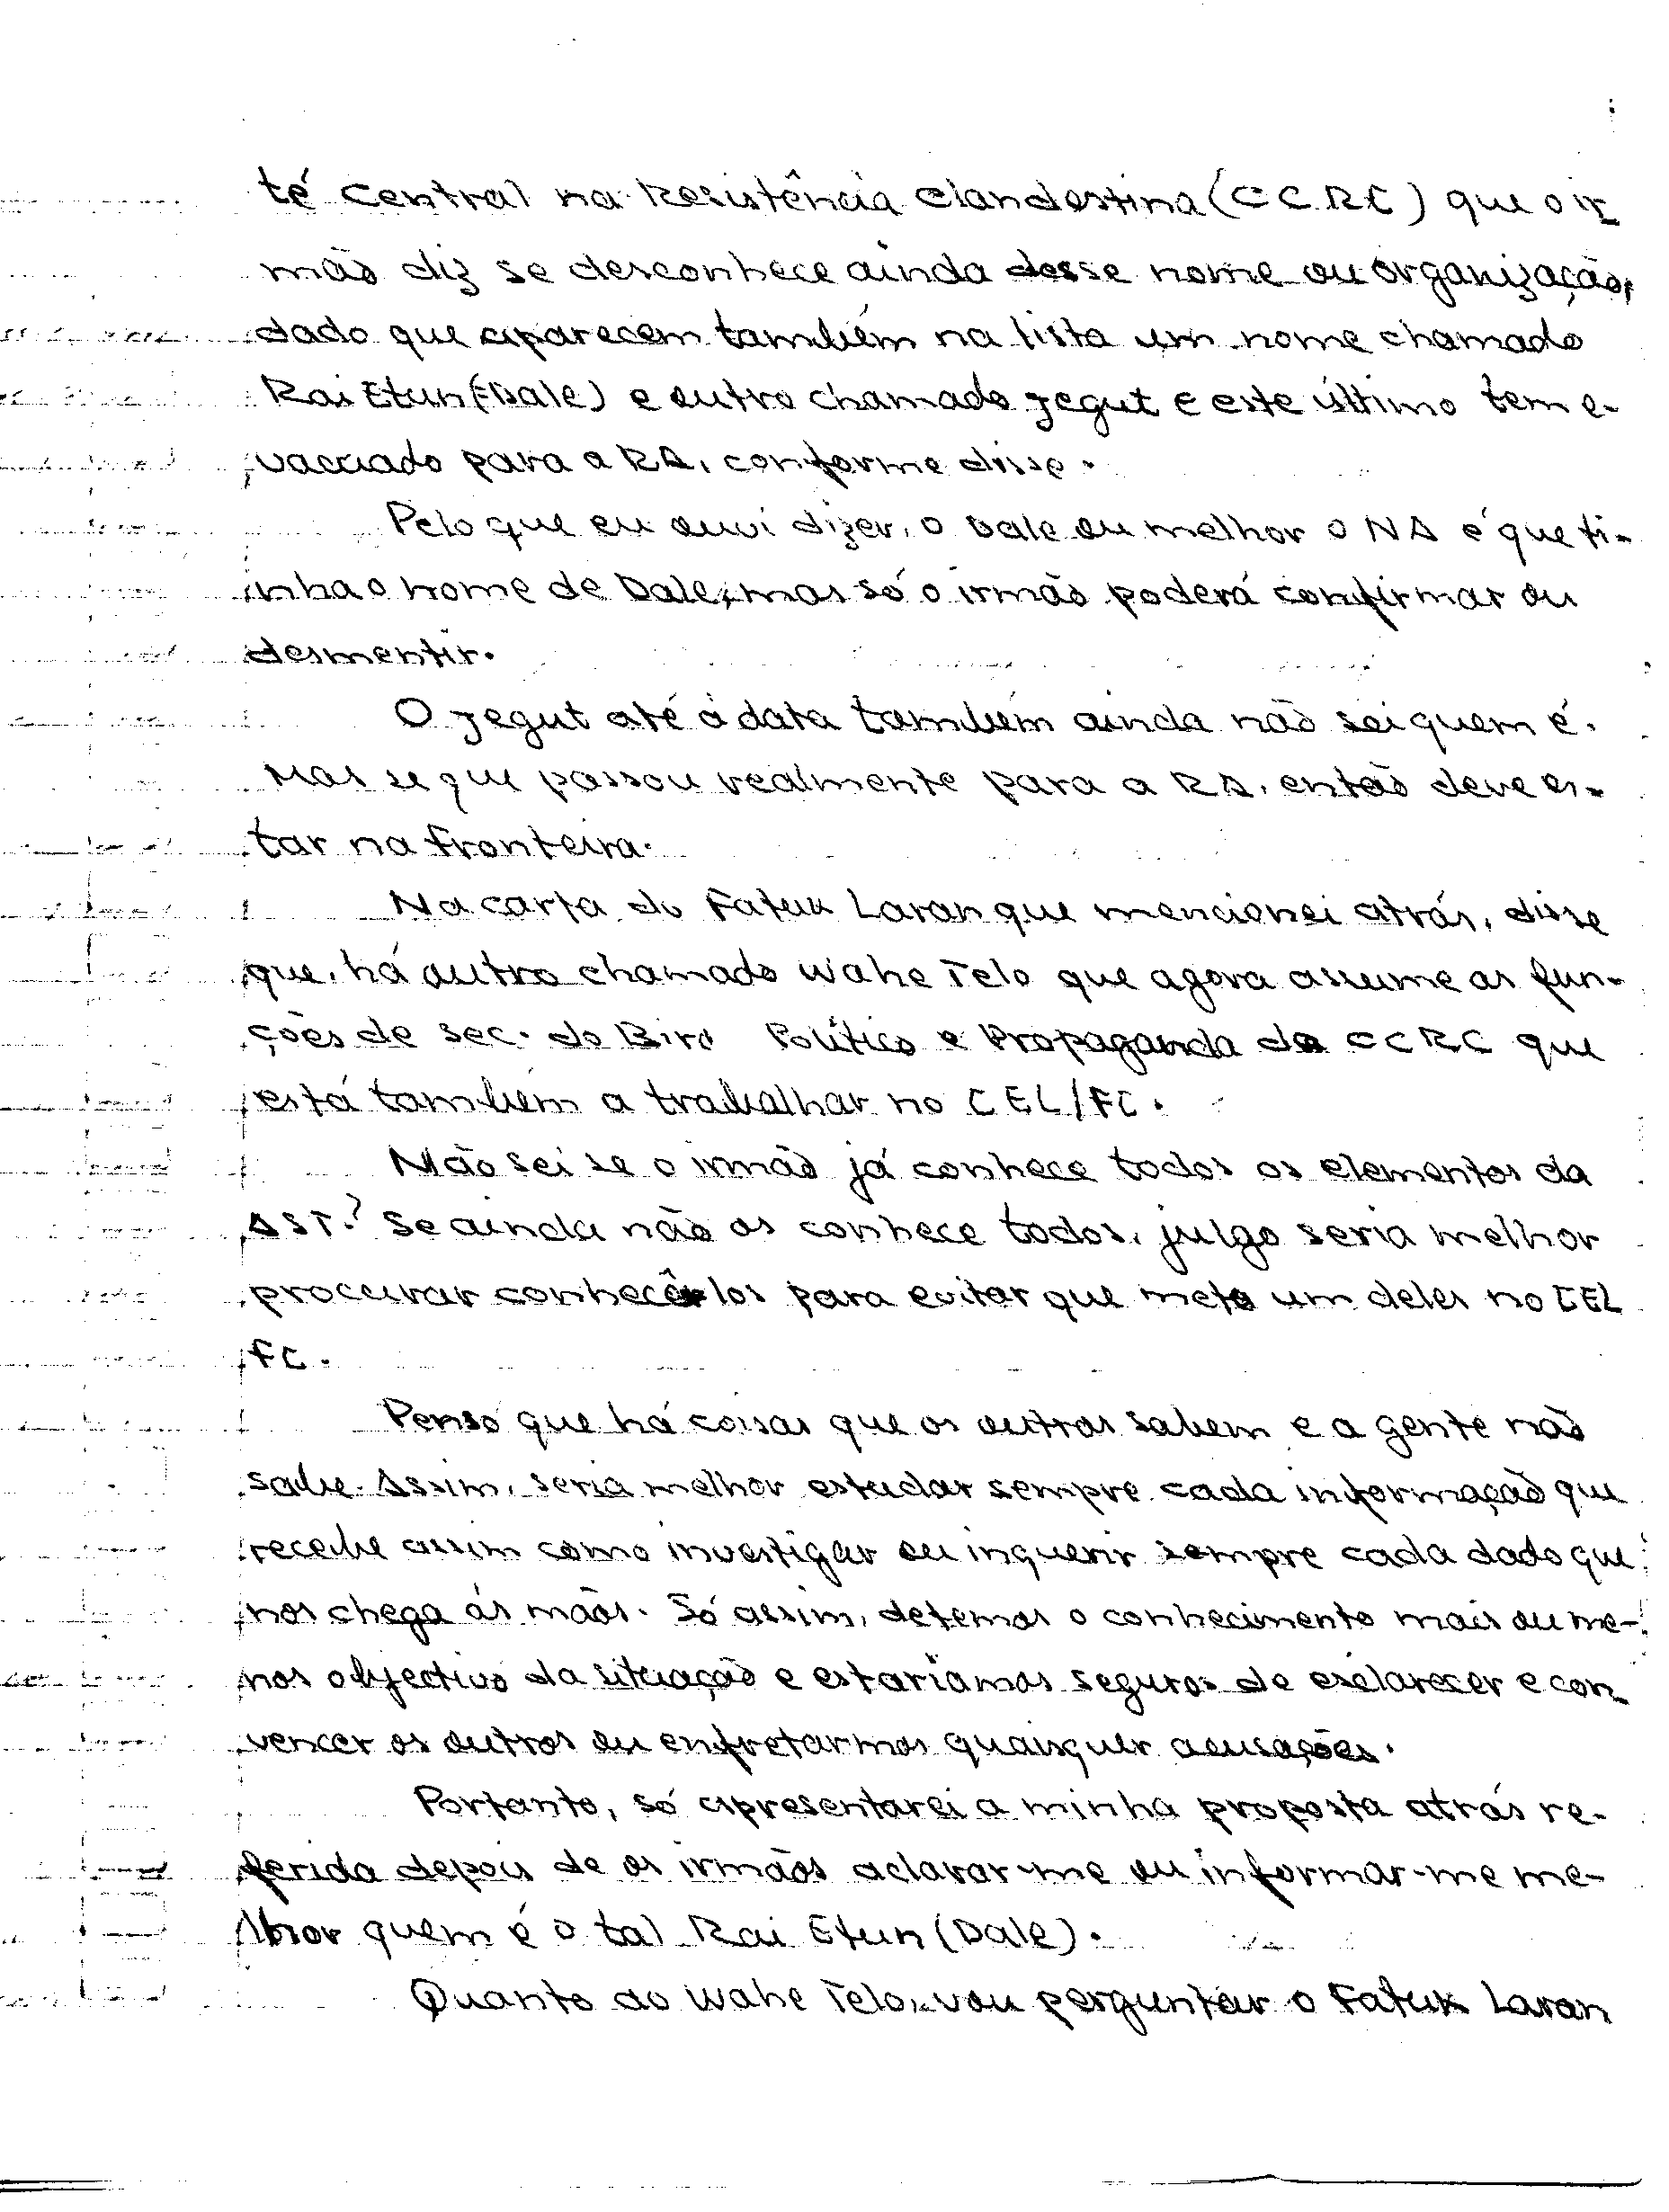 té Central na Resistência Clandestina (CCRC) que o ir
mão diz se desconhece ainda desse nome ou organização,
dado que aparecem também na lista um nome chamado
Rai Etun (Dale) e outro chamado Jegut e este último tem e-
vacuado para a RA, conforme disse.
Pelo que eu ouvi dizer, o Dale ou melhor o NA é que ti-
nha o nome de Dale, mas só o irmão poderá confirmar ou
desmentir.
O Jegut até à data também ainda não sei quem é.
Mas se que passou realmente para a RA, então deve es-
tar na fronteira.
Na carta do Fatuk Laran que mencionei atrás, disse
que, há outro chamado Wahe Telo que agora assume as fun-
ções de sec. do Biro Político e Propaganda da CCRC que
está também a trabalhar no CEL/FC.
Não sei se o irmão já conhece todos os elementos da
AST? Se ainda não os conhece todos, julgo seria melhor
procurar conhecê-los para evitar que meta um deles no CEL
FC.
Penso que há coisas que os outros sabem e a gente não
sabe. Assim, seria melhor estudar sempre cada informação que
recebe assim como investigar ou inquerir sempre cada dado que
nos chega ás mãos. Só assim, detemos o conhecimento mais ou me-
nos objectivo da situação e estariamos seguros de esclarecer e con-
vencer os outros ou enfretarmos quaisquer acusações.
Portanto, só apresentarei a minha proposta atrás re-
ferida depois de os irmãos aclarar-me ou informar-me me-
lhor quem é o tal Rai Etun (Dale).
Quanto ao Wahe Telo, vou perguntar o Fatuk Laran